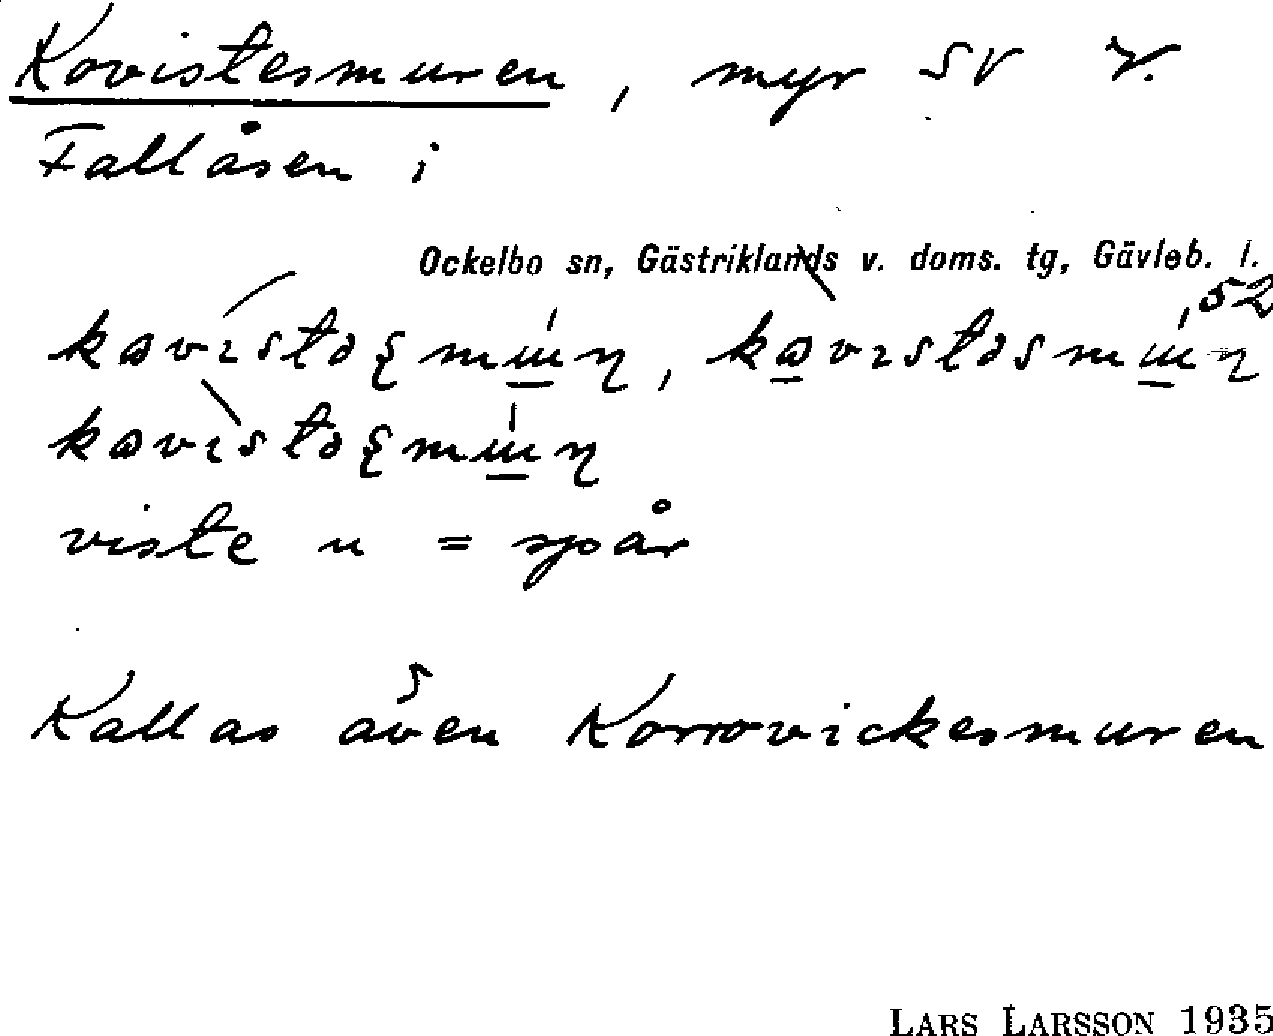 Kovistesmuren, myr SV r.
Fallåsen i
Ockelbo sn, Gästriklands v. doms. tg, Gävleb. l.
52
viste n = spår
Kallas även Korrovickesmuren
LARS LARSSON 1935